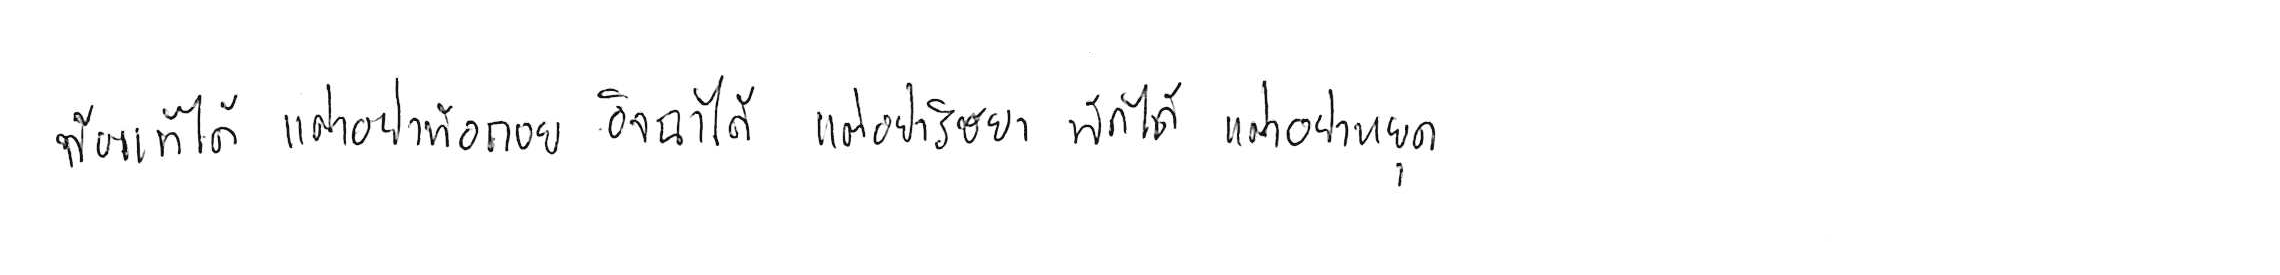 พ่ายแพ้ได้ แต่อย่าท้อถอย อิจฉาได้ แต่อย่าริษยา พักได้ แต่อย่าหยุด